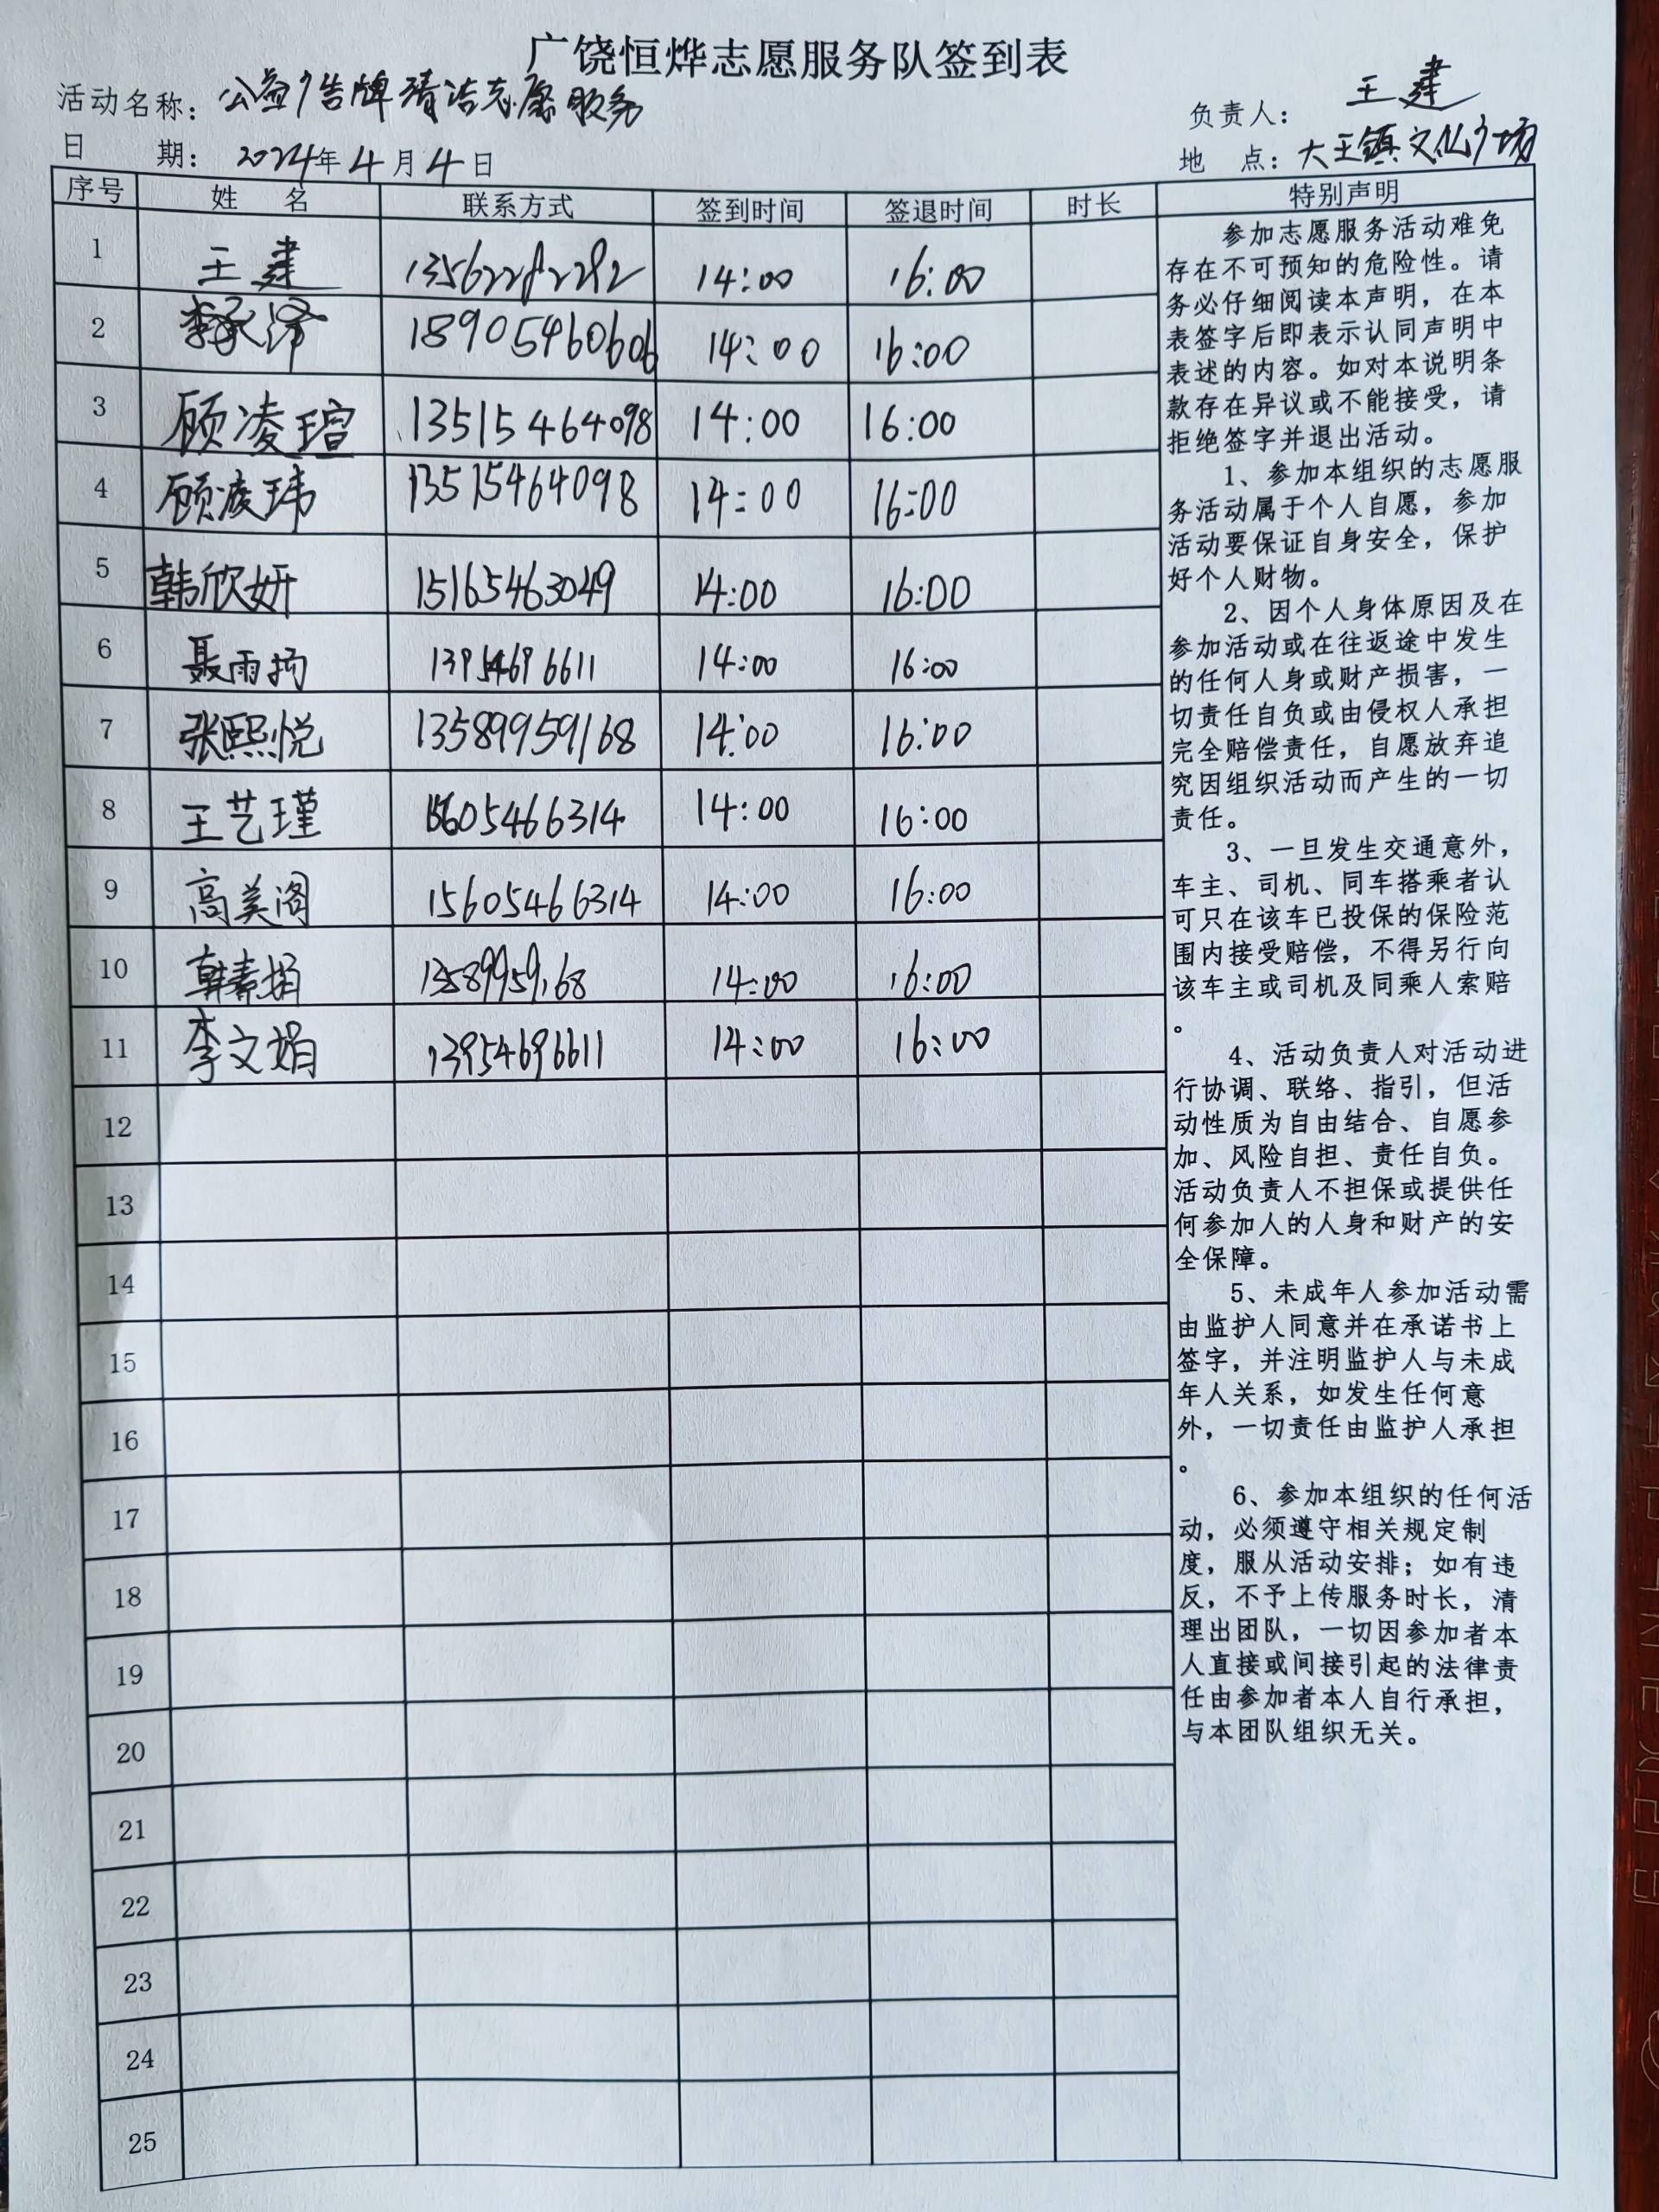 广饶恒烨志愿服务队签到表
活动名称：公益广告牌清洁志愿服务 负责人：王建
日 期：2024年4月4日 地 点：大王镇文化广场
序号 姓 名 联系方式 签到时间 签退时间 时长 特别声明
1 王建 13562282282 14:00 16:00
2 李承泽 18905460606 14:00 16:00
3 顾凌瑄 13515464098 14:00 16:00
4 顾凌玮 13515464098 14:00 16:00
5 韩欣妍 15165463049 14:00 16:00
6 聂雨扬 13954696611 14:00 16:00
7 张熙悦 13589959168 14:00 16:00
8 王艺瑾 15605466314 14:00 16:00
9 高美阁 15605466314 14:00 16:00
10 韩素娟 13589959168 14:00 16:00
11 李文娟 13954696611 14:00 16:00
12
13
14
15
16
17
18
19
20
21
22
23
24
25
参加志愿服务活动难免
存在不可预知的危险性。请
务必仔细阅读本声明，在本
表签字后即表示认同声明中
表述的内容。如对本说明条
款存在异议或不能接受，请
拒绝签字并退出活动。
1、参加本组织的志愿服
务活动属于个人自愿，参加
活动要保证自身安全，保护
好个人财物。
2、因个人身体原因及在
参加活动或在往返途中发生
的任何人身或财产损害，一
切责任自负或由侵权人承担
完全赔偿责任，自愿放弃追
究因组织活动而产生的一切
责任。
3、一旦发生交通意外，
车主、司机、同车搭乘者认
可只在该车已投保的保险范
围内接受赔偿，不得另行向
该车主或司机及同乘人索赔
。
4、活动负责人对活动进
行协调、联络、指引，但活
动性质为自由结合、自愿参
加、风险自担、责任自负。
活动负责人不担保或提供任
何参加人的人身和财产的安
全保障。
5、未成年人参加活动需
由监护人同意并在承诺书上
签字，并注明监护人与未成
年人关系，如发生任何意
外，一切责任由监护人承担
。
6、参加本组织的任何活
动，必须遵守相关规定制
度，服从活动安排；如有违
反，不予上传服务时长，清
理出团队，一切因参加者本
人直接或间接引起的法律责
任由参加者本人自行承担，
与本团队组织无关。